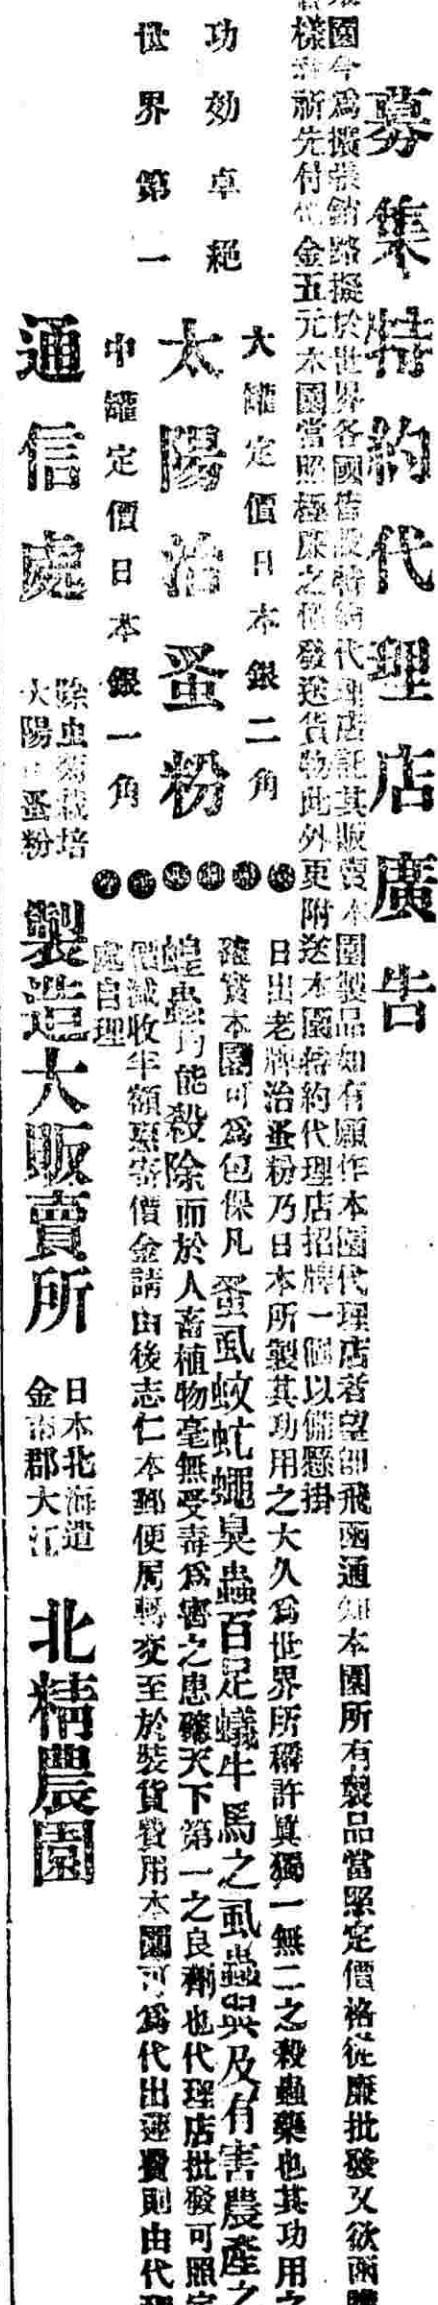 募集特約代理店廣告
園今爲擴張銷路擬於世界各國代理店託其販賣本園製品如有願作本園代理店者望卽飛函通知本園所有製品當照定價格從廉批發又欲函
樣祈先付金五元本園當照極廉之價發送貨物此外更附送本園特約代理店招牌一個以備懸掛
功効卓絕
世界第一
大罐定價日本銀二角
太陽治蚤粉
中罐定價日本銀一角
日出老牌治蚤粉乃日本所製其功用之大久爲世界所稱許眞獨一無二之殺蟲藥也其功用之
確實本園可爲包保凡蚤虱蚊虻蠅臭蟲百足蟻牛馬之虱蟲與及有害農產之
蝗蟲均能殺除而於人畜植物毫無受毒爲害之患確天下第一之良劑也代理店批發可照定
價減收半額匯寄價金請由後志仁本郵便局轉交至於裝貨費用本園可爲代出運費則由代理
處自理
通信處
除虫菊栽培
太陽蚤粉
製造大販賣所
日本北海道
郡大江
北精農園